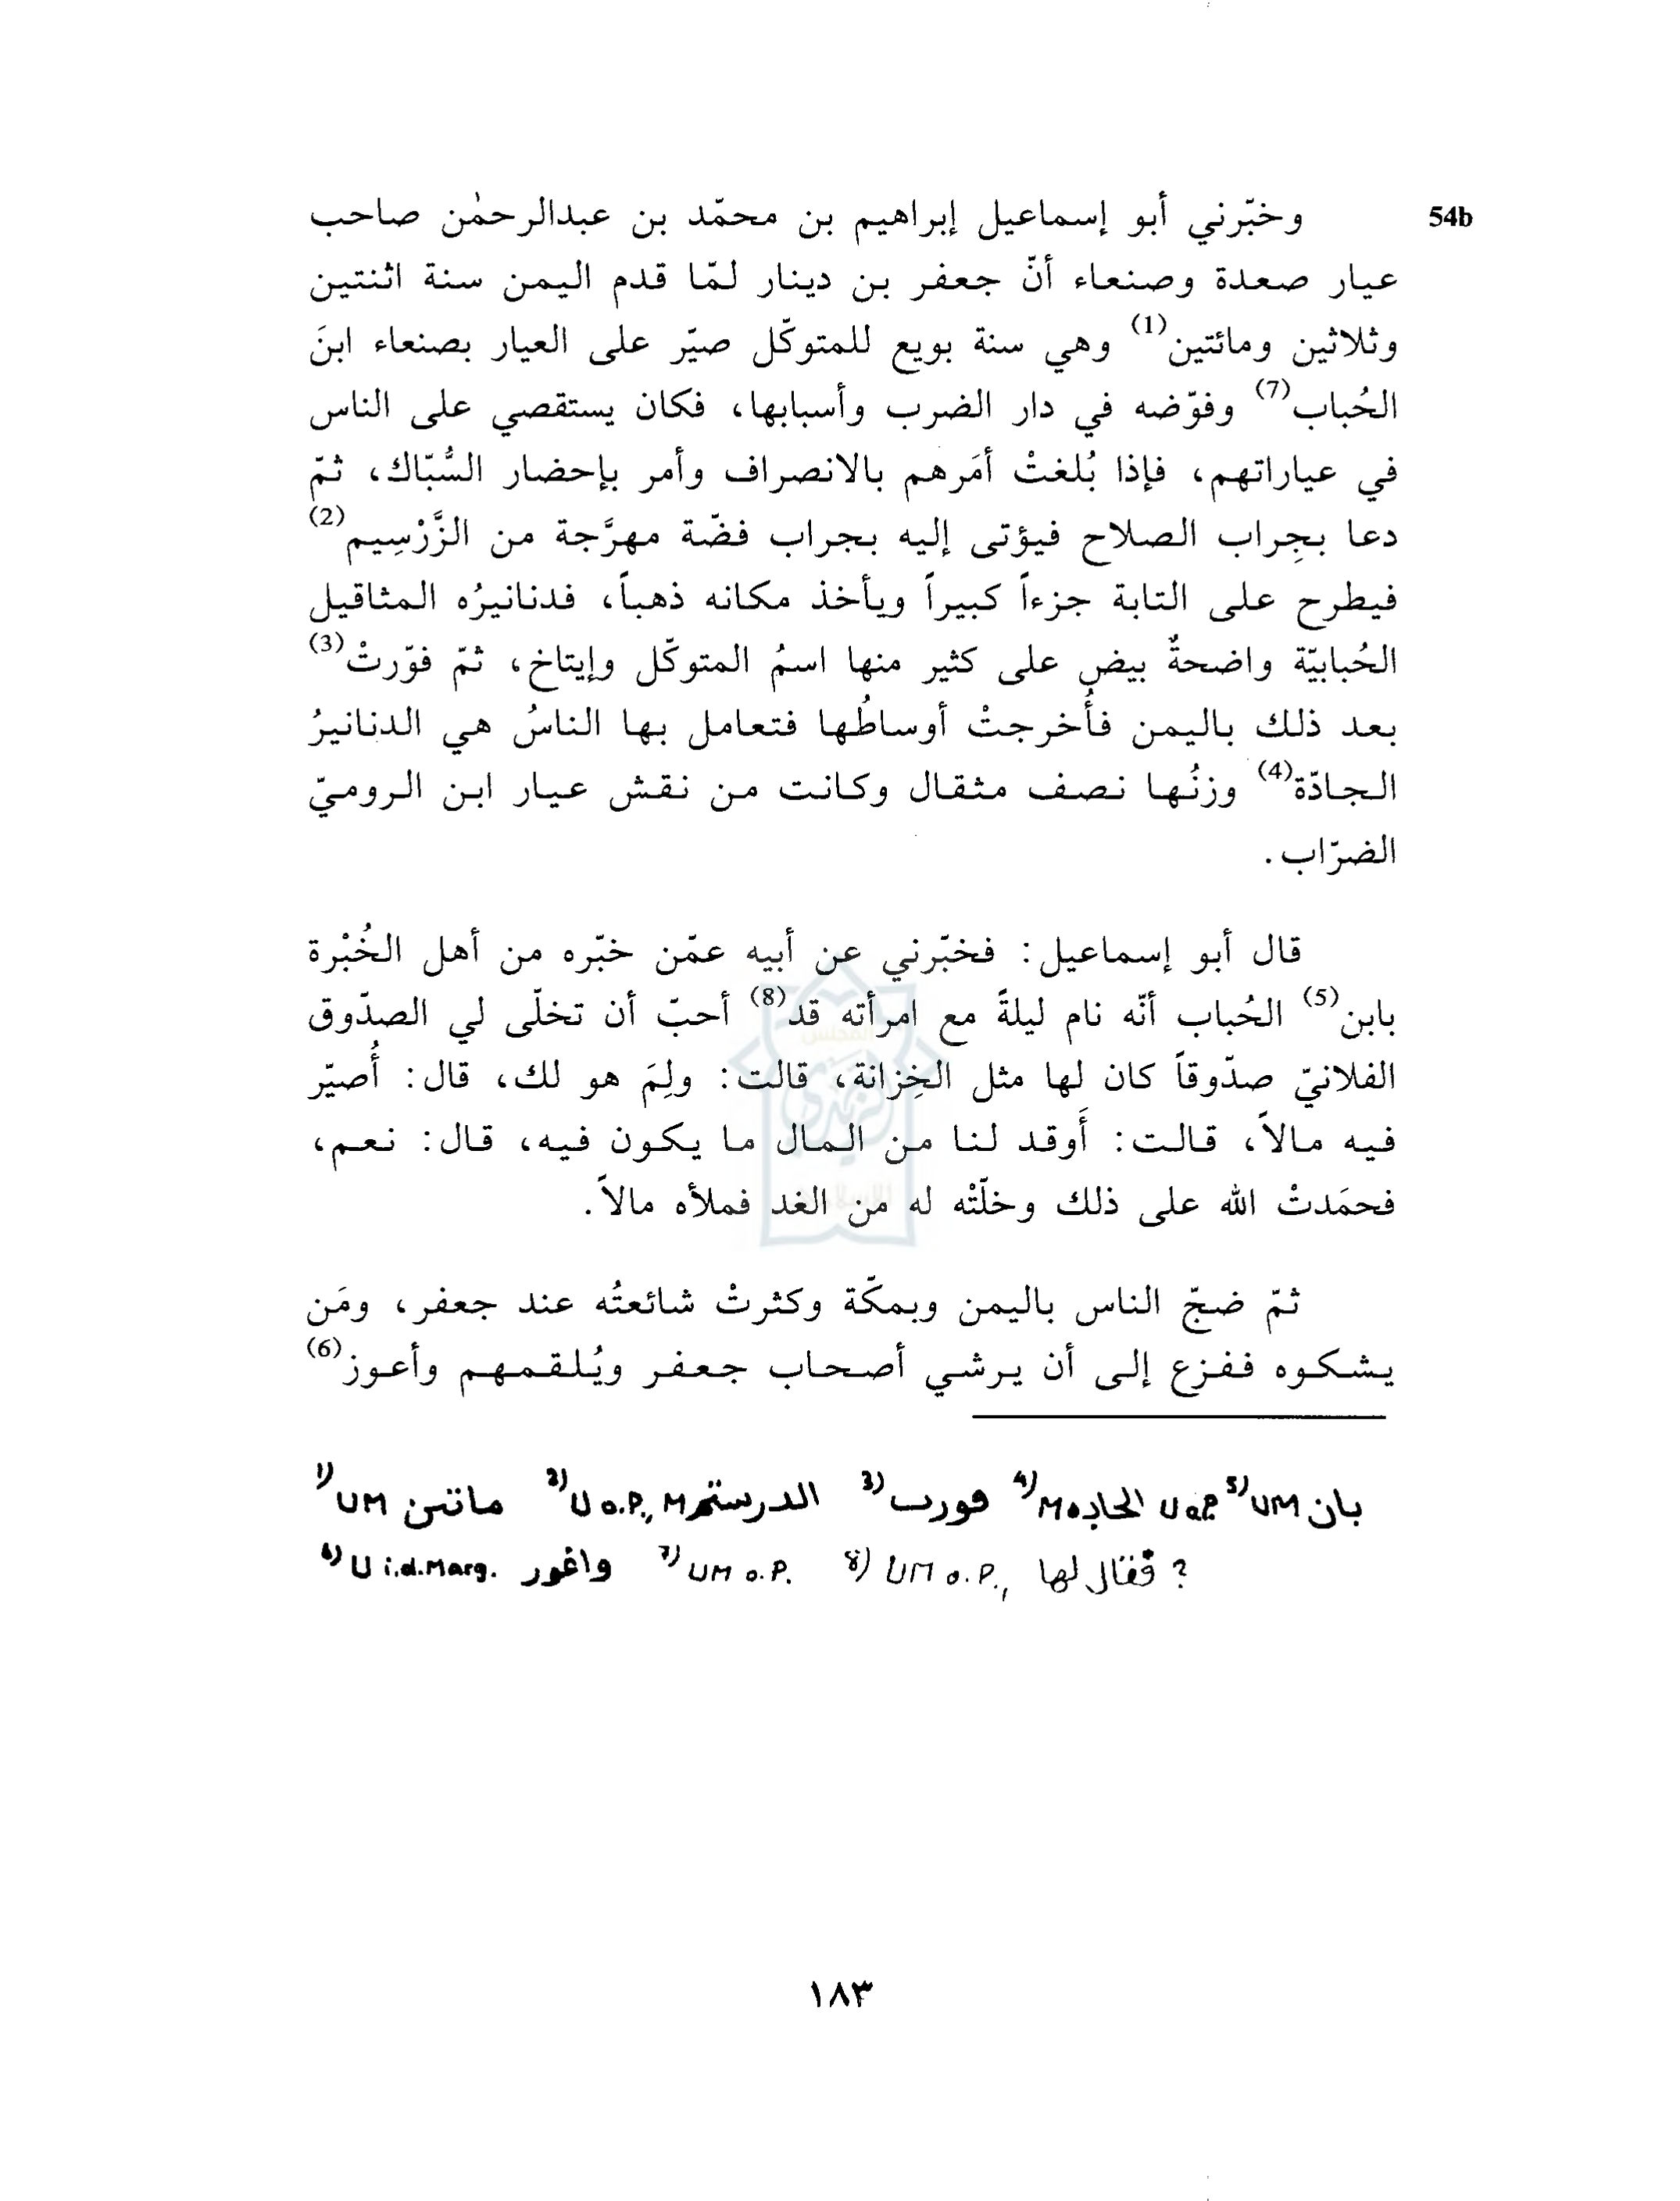 وخبّرني أبو إسماعيل إبراهيم بن محمّد بن عبدالرحمٰن صاحب 54b
عيار صعدة وصنعاء أنّ جعفر بن دينار لمّا قدم اليمن سنة اثنتين
وثلاثين ومائتين(1) وهي سنة بويع للمتوكّل صيّر على العيار بصنعاء ابنَ
الحُباب(7) وفوّضه في دار الضرب وأسبابها، فكان يستقصي على الناس
في عياراتهم، فإذا بُلغتْ أمَرهم بالانصراف وأمر بإحضار السُّبّاك، ثمّ
دعا بجِراب الصلاح فيؤتى إليه بجراب فضّة مهرَّجة من الزَّرْسِيم(2)
فيطرح على التابة جزءاً كبيراً ويأخذ مكانه ذهباً، فدنانيرُه المثاقيل
الحُبابيّة واضحةٌ بيض على كثير منها اسمُ المتوكّل وإيتاخ، ثمّ فوّرتْ(3)
بعد ذلك باليمن فأُخرجتْ أوساطُها فتعامل بها الناسُ هي الدنانيرُ
الجادّة(4) وزنُها نصف مثقال وكانت من نقش عيار ابن الروميّ
الضرّاب.
قال أبو إسماعيل: فخبّرني عن أبيه عمّن خبّره من أهل الخُبْرة
بابن(5) الحُباب أنّه نام ليلةً مع امرأته قد(8) أحبّ أن تخلّى لي الصدّوق
الفلانيّ صدّوقاً كان لها مثل الخِزانة، قالت: ولِمَ هو لك، قال: أُصيّر
فيه مالاً، قالت: أَوقد لنا من المال ما يكون فيه، قال: نعم،
فحمَدتْ الله على ذلك وخلّتْه له من الغد فملأه مالاً.
ثمّ ضجّ الناس باليمن وبمكّة وكثرتْ شائعتُه عند جعفر، ومَن
يشكوه ففزع إلى أن يرشي أصحاب جعفر ويُلقمهم وأعوز(6)
1) UM ماتىں 2) U o.P., M الدرستم 3) فورب 4) M الحاده U o.P. 5) UM بان
6) U i.d.Marg. واغور 7) UM o.P. 8) UM o.P., فقال لها ?
١٨٣